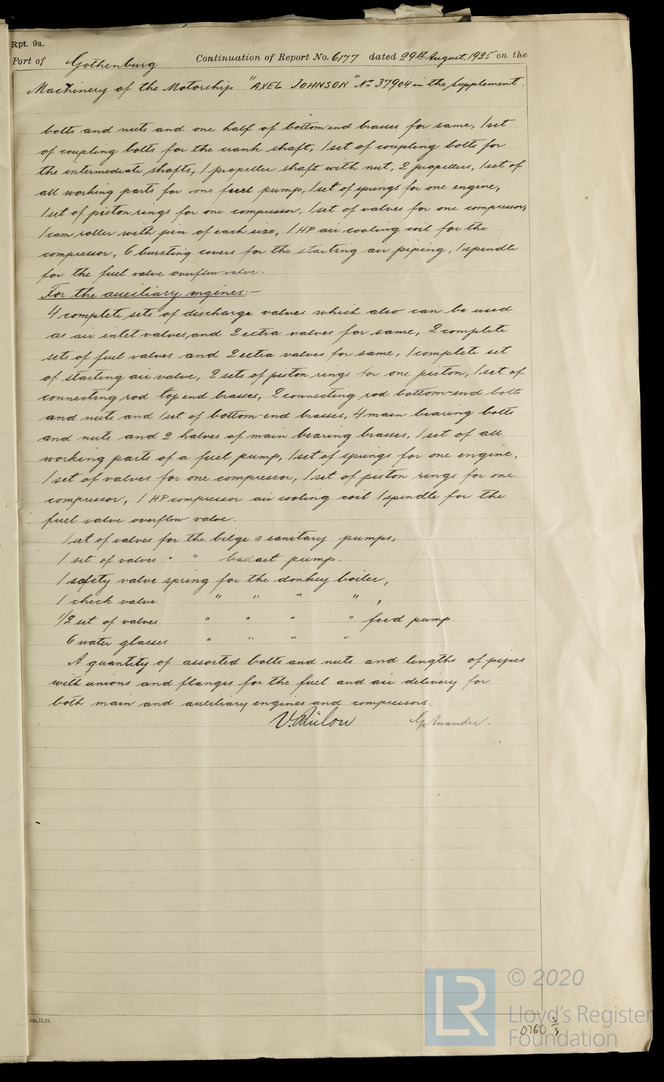 Rpt. 9a.
Port of Gothenburg Continuation of Report No. 6177 dated 29th August, 1925 on the
Machinery of the Motorship "AXEL JOHNSON" No 37904 in the Supplement.
bolts and nuts and one half of bottom end brasses for same, 1 set
of coupling bolts for the crank shaft, 1 set of coupling bolts for
the intermediate shafts, 1 propeller shaft with nut, 2 propellers, 1 set of
all working parts for one fuel pump, 1 set of springs for one engine,
1 set of piston rings for one compressor, 1 set of valves for one compressor,
1 cam roller with pin of each size, 1 HP air cooling coil for the
compressor, 6 bursting covers for the starting air piping, 1 spindle
for the fuel valve overflow valve.
For the auxiliary engines:-
4 complete sets of discharge valves which also can be used
as air inlet valves, and 2 extra valves for same, 2 complete
sets of fuel valves and 2 extra valves for same, 1 complete set
of starting air valve, 2 sets of piston rings for one piston, 1 set of
connecting rod top end brasses, 2 connecting rod bottom-end bolts
and nuts and 1 set of bottom-end brasses, 4 main bearing bolts
and nuts and 2 halves of main bearing brasses, 1 set of all
working parts of a fuel pump, 1 set of springs for one engine,
1 set of valves for one compressor, 1 set of piston rings for one
compressor, 1 HP compressor air cooling coil 1 spindle for the
fuel valve overflow valve.
1 set of valves for the bilge & sanitary pumps,
1 set of valves " " ballast pump.
1 safety valve spring for the donkey boiler,
1 check valve " " " " ,
1/2 set of valves " " " " feed pump.
6 water glasses " " " "
A quantity of assorted bolts and nuts and lengths of pipes
with unions and flanges for the fuel and air delivery for
both main and auxiliary engines and compressors.
© 2020
LR
Lloyd's Register
Foundation